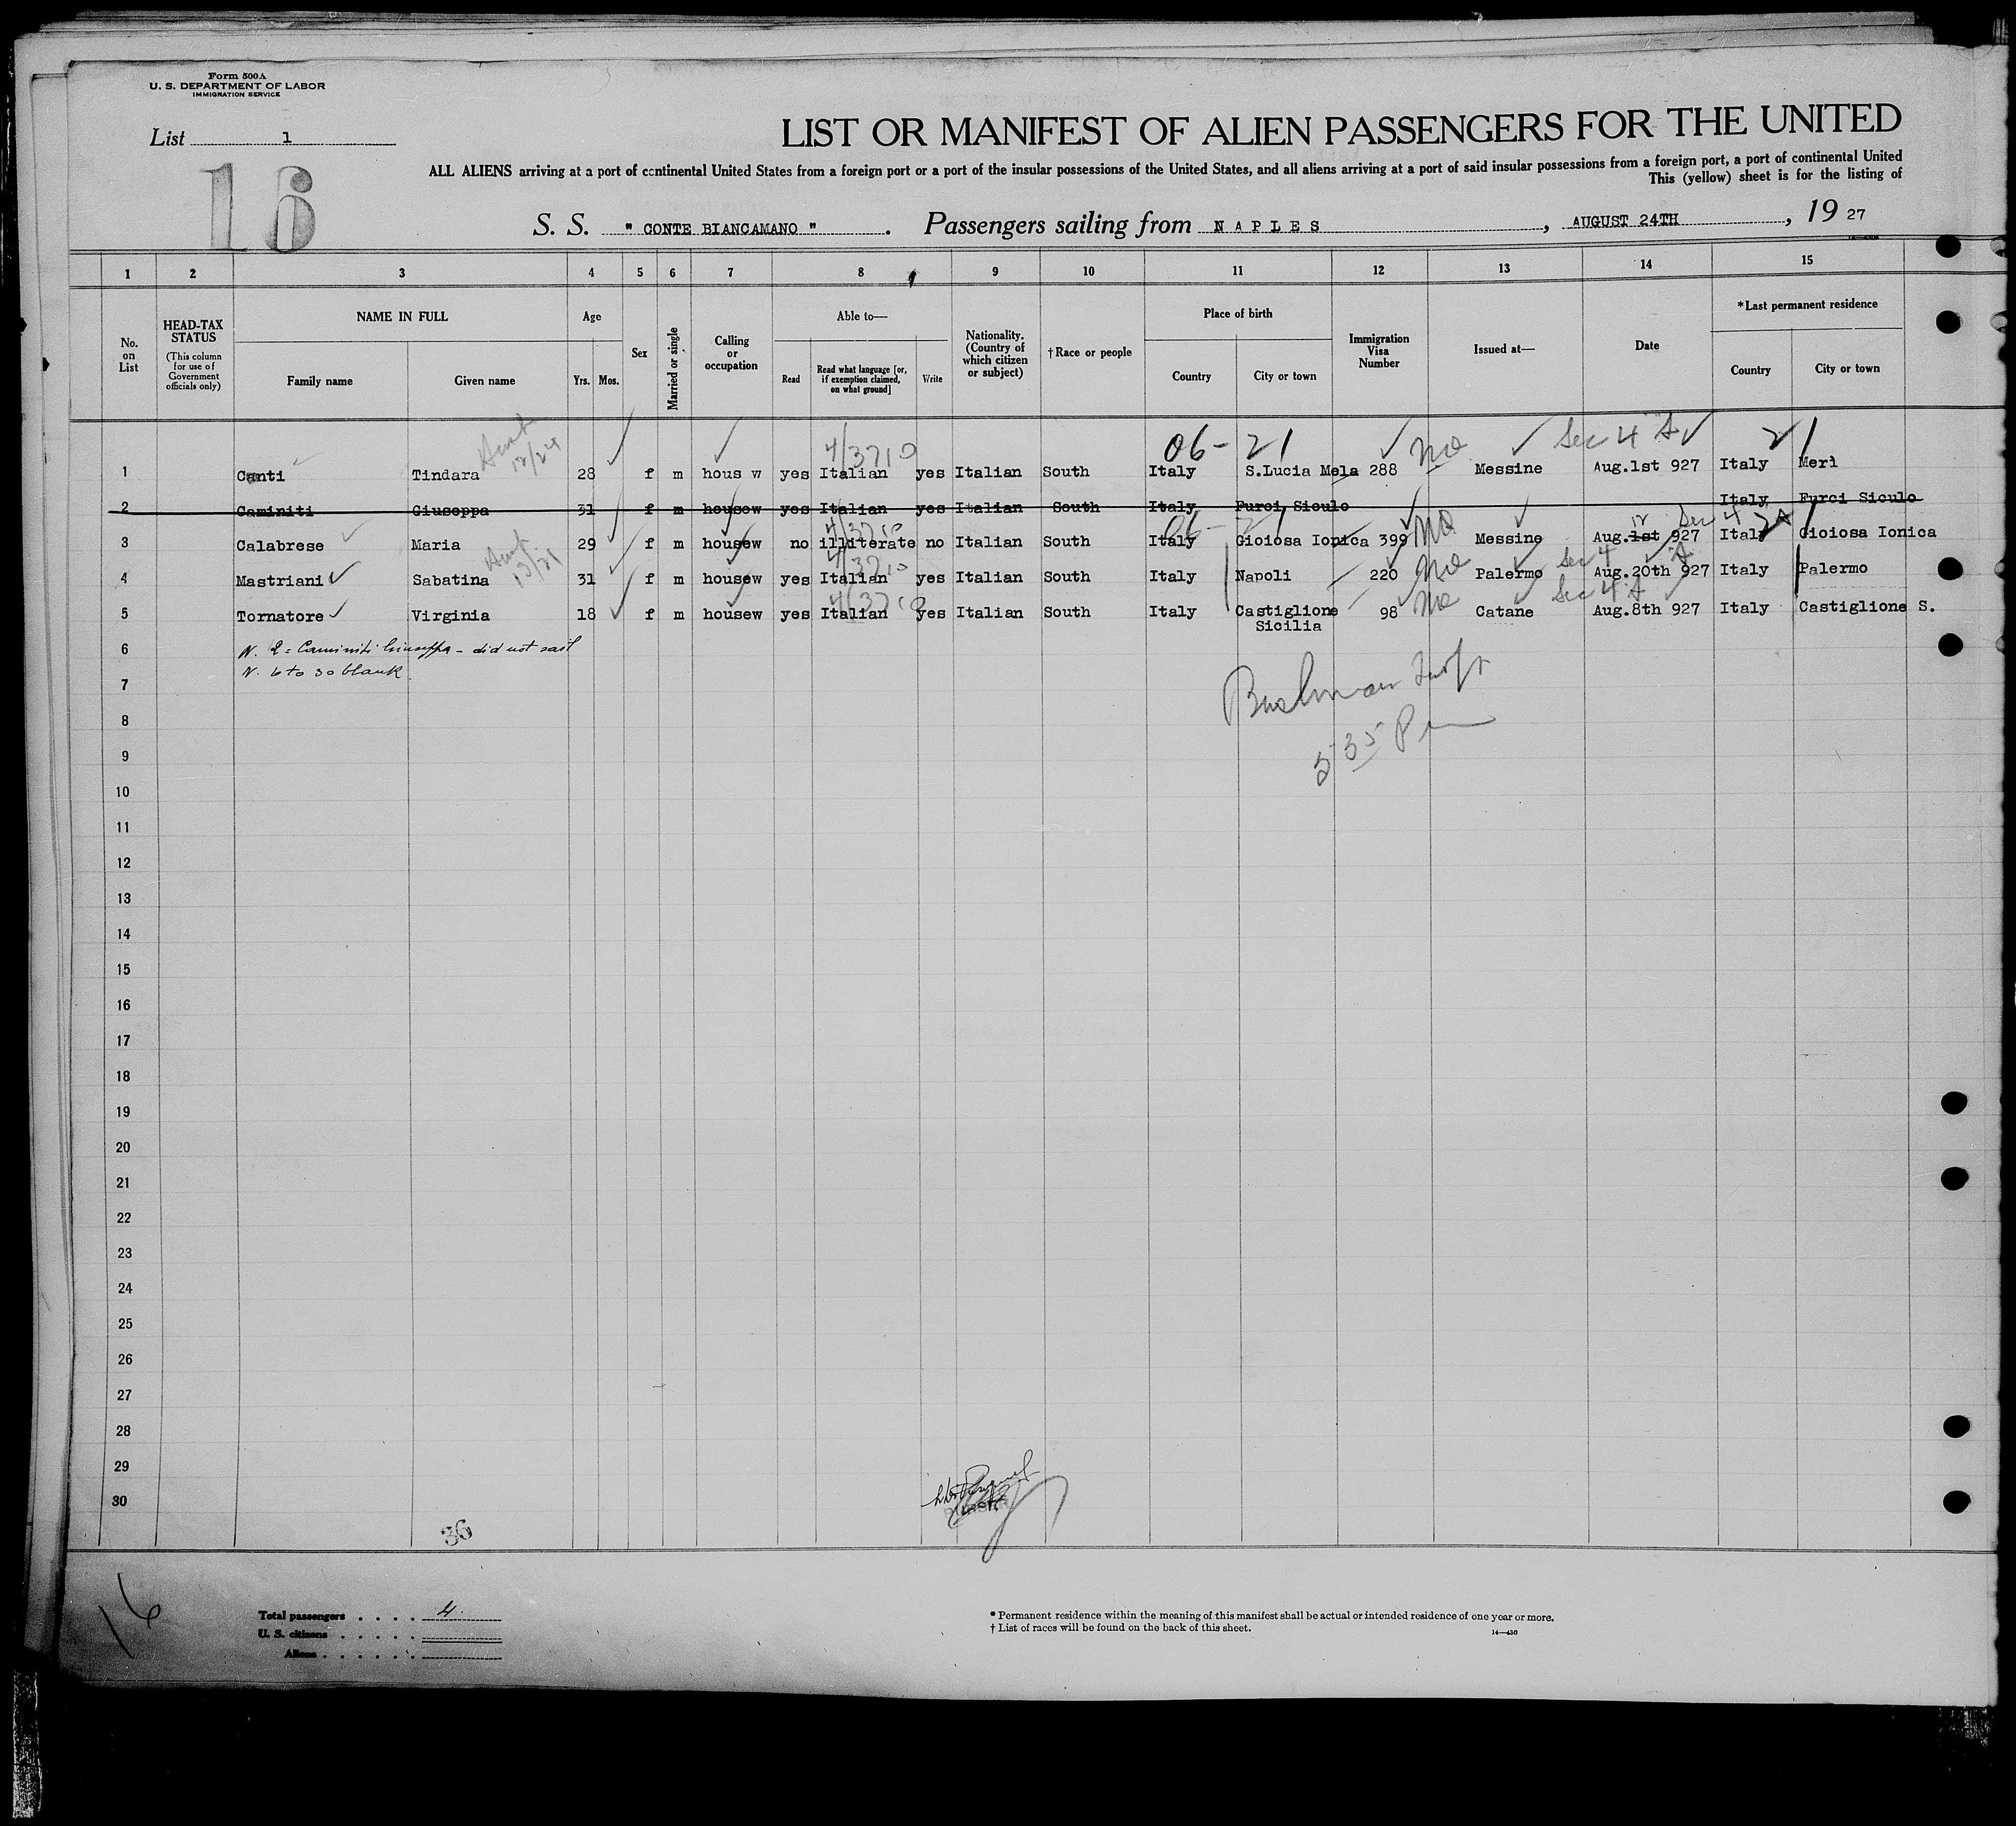 Form 500A
U. S. DEPARTMENT OF LABOR
IMMIGRATION SERVICE
List 1
16
LIST OR MANIFEST OF ALIEN PASSENGERS FOR THE UNITED
ALL ALIENS arriving at a port of continental United States from a foreign port or a port of the insular possessions of the United States, and all aliens arriving at a port of said insular possessions from a foreign port, a port of continental United
This (yellow) sheet is for the listing of
S. S. " CONTE BIANCAMANO " . Passengers sailing from NAPLES , AUGUST 24TH , 19 27
1 2 3 4 5 6 7 8 9 10 11 12 13 14 15
No. on List
HEAD-TAX STATUS (This column for use of Government officials only)
NAME IN FULL
Family name Given name
Age
Yrs. Mos.
Sex
Married or single
Calling or occupation
Able to—
Read
Read what language [or, if exemption claimed, on what ground]
Write
Nationality. (Country of which citizen or subject)
† Race or people
Place of birth
Country City or town
Immigration Visa Number
Issued at—
Date
*Last permanent residence
Country City or town
4/3710 06- 21 no Sec 4 A 21
1 Canti Tindara 28 f m hous w yes Italian yes Italian South Italy S.Lucia Mela 288 Messine Aug.1st 927 Italy Merì
2 Caminiti Giuseppa 31 f m housew yes Italian yes Italian South Italy Furci Siculo Italy Furci Siculo
3 Calabrese Maria 29 f m housew no illiterate no Italian South Italy Gioiosa Ionica 399 Messine Aug.1st 927 Italy Gioiosa Ionica
4 Mastriani Sabatina 31 f m housew yes Italian yes Italian South Italy Napoli 220 Palermo Aug.20th 927 Italy Palermo
5 Tornatore Virginia 18 f m housew yes Italian yes Italian South Italy Castiglione Sicilia 98 Catane Aug.8th 927 Italy Castiglione S.
6 N. 2 = Caminiti Giuseppa - did not sail
N. 6 to 30 blank.
7
8
9
10
11
12
13
14
15
16
17
18
19
20
21
22
23
24
25
26
27
28
29
30
5 35 Pm
36
16
Total passengers . . . . 4.
U. S. citizens . . . . .
Aliens . . . . . .
* Permanent residence within the meaning of this manifest shall be actual or intended residence of one year or more.
† List of races will be found on the back of this sheet.
14—430